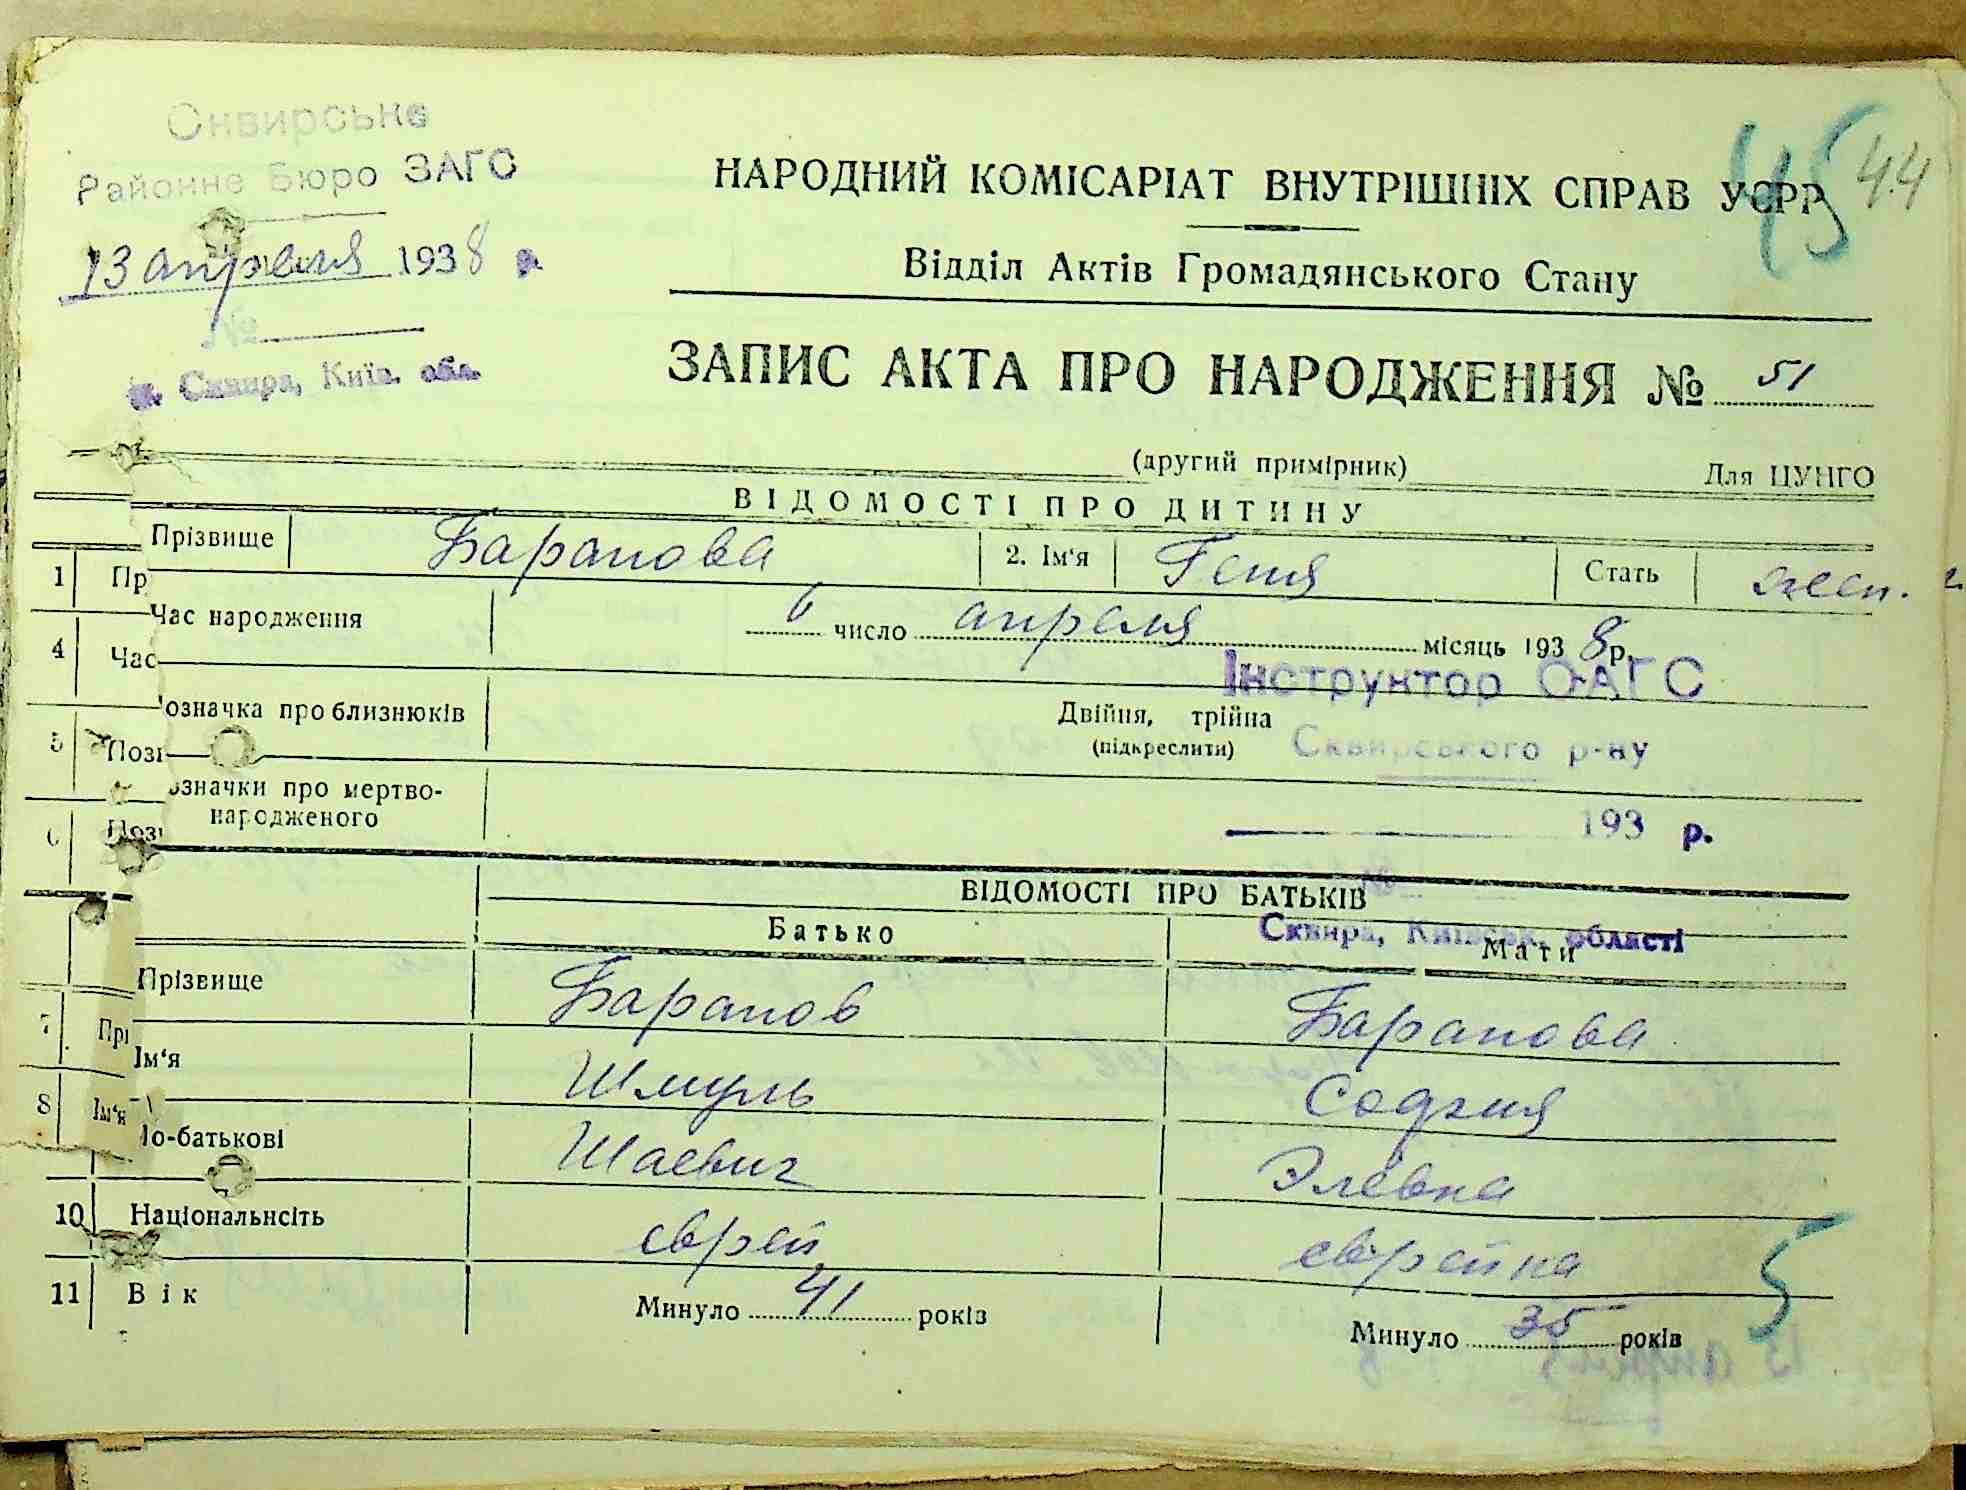 Сквирське
Районне Бюро ЗАГС
13 апреля 1938 р.
№
м. Сквира, Київ. обл.
45 44
НАРОДНИЙ КОМІСАРІАТ ВНУТРІШНІХ СПРАВ УСРР
Відділ Актів Громадянського Стану
ЗАПИС АКТА ПРО НАРОДЖЕННЯ № 51
(другий примірник) Для ЦУНГО
ВІДОМОСТІ ПРО ДИТИНУ
Прізвище Баранова 2. Ім'я Геня Стать жен.
1 Пр
Час народження 6 число апреля місяць 1938 р.
4 Час
Інструктор ОАГС
означка про близнюків Двійня, трійна
(підкреслити)
Сквирського р-ну
5 Позн
означки про мертво-
народженого
193 р.
6 Позн
№
ВІДОМОСТІ ПРО БАТЬКІВ
Сквира, Київськ. області
Батько Мати
Прізвище Баранов Баранова
7 Прі
Ім'я Шмуль София
8 Ім'я
По-батькові Шаевич Элевна
10 Національність еврей еврейка
11 Вік Минуло 41 років Минуло 35 років
5